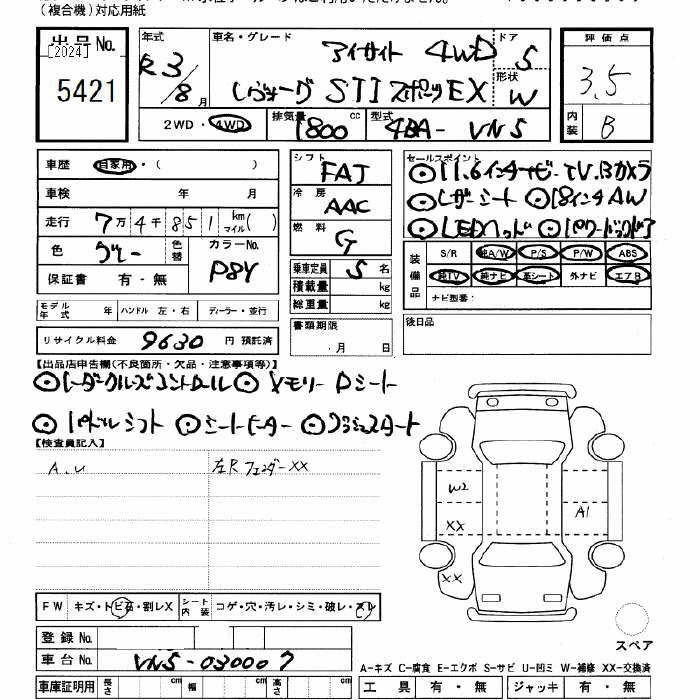 (複合機)対応用紙
出品No. [2024] 5421
年式 R3/8月
車名・グレード アイサイト 4WD
レヴォーグ STI スポーツ EX
ドア 5
形状 W
評価点 3.5
内装 B
2WD・4WD 排気量 1800 cc 型式 4BA- VN5
車歴 自家用・( )
車検 年 月
走行 7万4千851 km マイル( )
色 グレー 色替 カラーNo. P8Y
保証書 有・無
シフト FAT
冷房 AAC
燃料 G
乗車定員 5 名
積載量 kg
総重量 kg
書類期限 ・月 日
セールスポイント
⊙11.6インチナビ-TV.Bカメラ
⊙レザーシート ⊙18インチAW
⊙LEDヘッド ⊙パワーバックドア
装備品 S/R 純A/W P/S P/W ABS
純TV 純ナビ 革シート 外ナビ エアB
ナビ型番:
後日品
モデル年式 年 ハンドル 左・右 ディーラー・並行
リサイクル料金 9630 円 預託済
【出品店申告欄(不良箇所・欠品・注意事項等)】
⊙レーダークルーズコントロール ⊙メモリーPシート
⊙パドルシフト ⊙シートヒーター ⊙プッシュスタート
【検査員記入】
A.U 左Rフェンダー XX
W2
XX
XX
A1
FW キズ・トビ石・割レX シート内装 コゲ・穴・汚レ・シミ・破レ・スレ
登録No.
車台No. VN5-030007
スペア
A-キズ C-腐食 E-エクボ S-サビ U-凹ミ W-補修 XX-交換済
車庫証明用 長さ cm 幅 cm 高さ cm 工具 有・無 ジャッキ 有・無